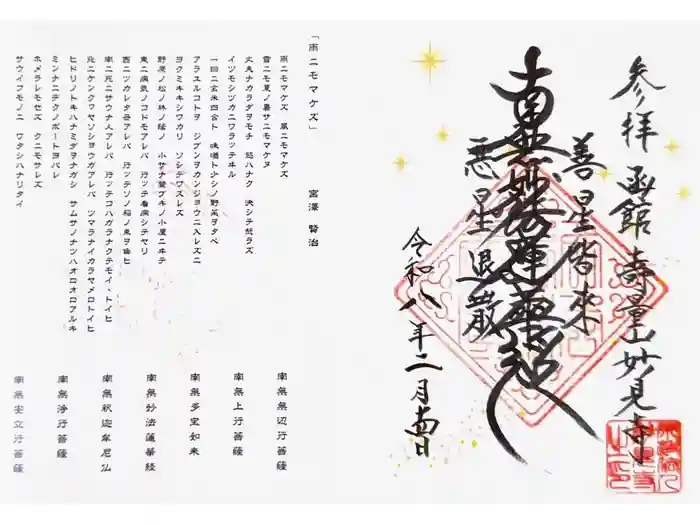 参拝 函館 壽量山 妙見寺
善星皆来
南無妙法蓮華経
悪星退散
令和八年二月吉日
「雨ニモマケズ」 宮澤 賢治
雨ニモマケズ 風ニモマケズ
雪ニモ夏ノ暑サニモマケヌ
丈夫ナカラダヲモチ 慾ハナク 決シテ怒ラズ
イツモシヅカニワラッテヰル
一日ニ玄米四合ト 味噌ト少シノ野菜ヲタベ
アラユルコトヲ ジブンヲカンジョウニ入レズニ
ヨクミキキシワカリ ソシテワスレズ
野原ノ松ノ林ノ蔭ノ 小サナ萱ブキノ小屋ニヰテ
東ニ病気ノコドモアレバ 行ッテ看病シテヤリ
西ニツカレタ母アレバ 行ッテソノ稲ノ束ヲ負ヒ
南ニ死ニサウナ人アレバ 行ッテコハガラナクテモイヽトイヒ
北ニケンクヮヤソショウガアレバ ツマラナイカラヤメロトイヒ
ヒドリノトキハナミダヲナガシ サムサノナツハオロオロアルキ
ミンナニデクノボートヨバレ
ホメラレモセズ クニモサレズ
サウイフモノニ ワタシハナリタイ
南無無辺行菩薩
南無上行菩薩
南無多宝如来
南無妙法蓮華経
南無釈迦牟尼仏
南無浄行菩薩
南無安立行菩薩